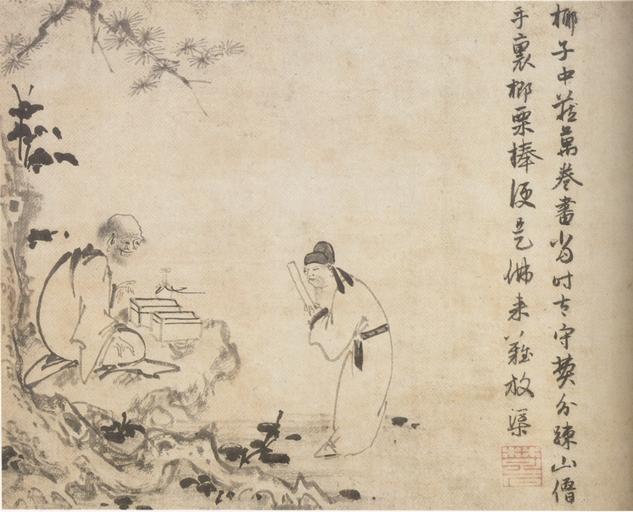 椰子中藏萬卷書當時太守焚分疎山僧
手裏榔栗棒便是佛来難放渠